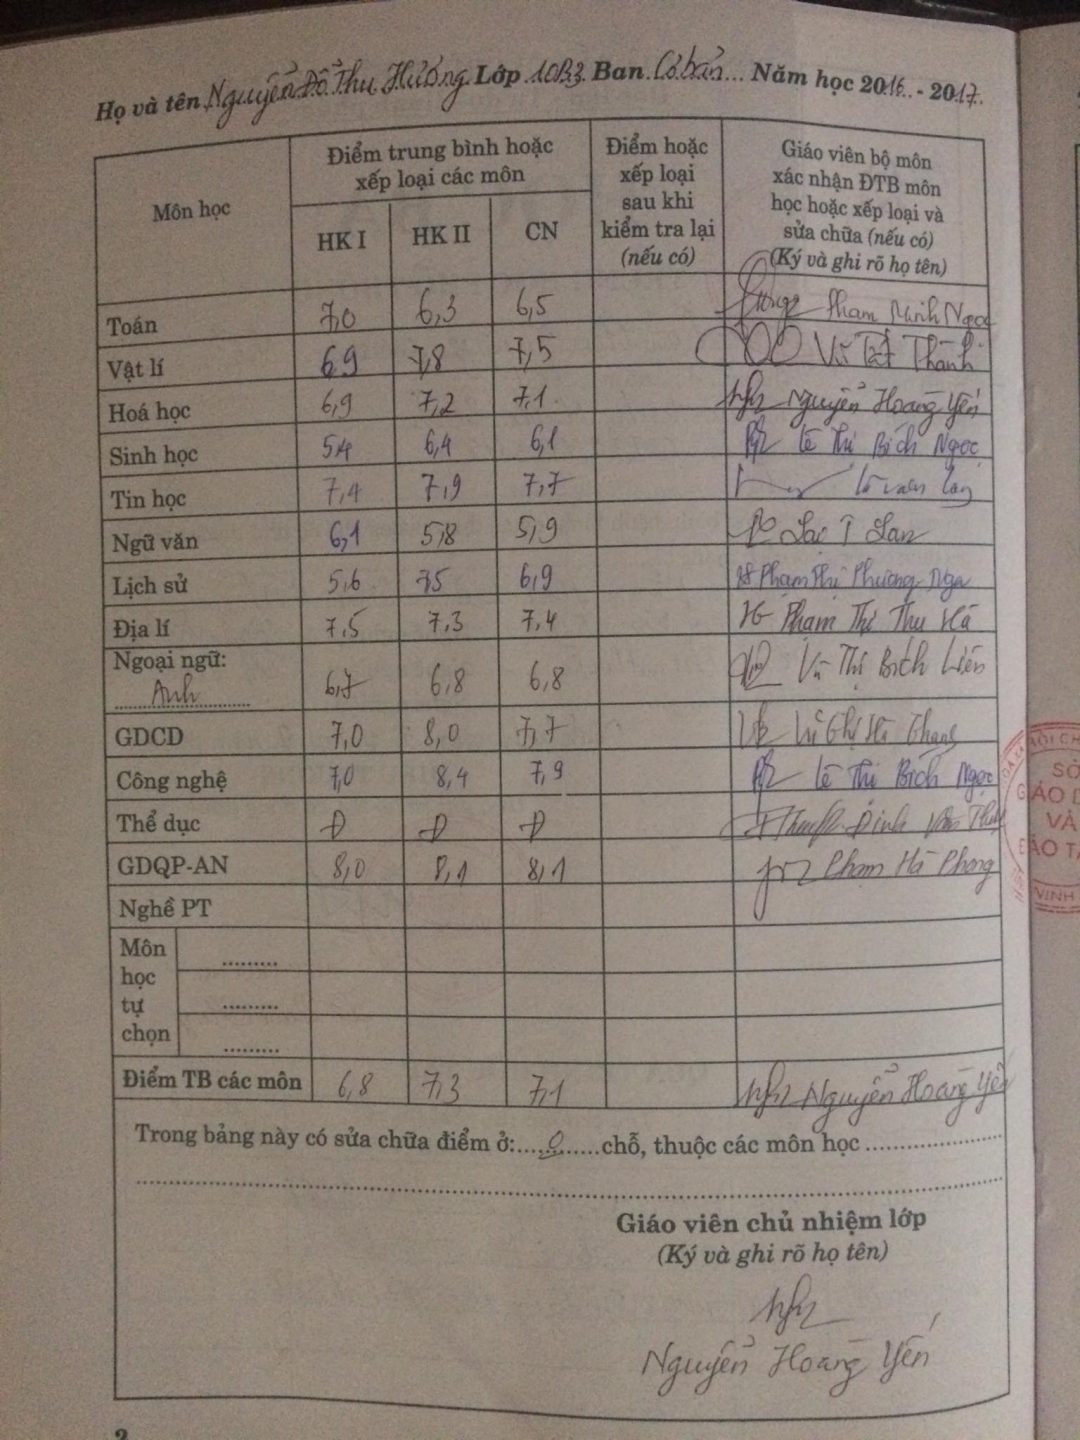 Họ và tên Nguyễn Đỗ Thu Hường Lớp 10B3 Ban Cơ bản... Năm học 2016 - 2017.
Môn học
Điểm trung bình hoặc
xếp loại các môn
HK I HK II CN
Điểm hoặc
xếp loại
sau khi
kiểm tra lại
(nếu có)
Giáo viên bộ môn
xác nhận ĐTB môn
học hoặc xếp loại và
sửa chữa (nếu có)
(Ký và ghi rõ họ tên)
Toán 7,0 6,3 6,5 Phạm Minh Ngọc
Vật lí 6,9 7,8 7,5 Vũ Tất Thành
Hoá học 6,9 7,2 7,1 Nguyễn Hoàng Yến
Sinh học 5,4 6,4 6,1 Lê Thị Bích Ngọc
Tin học 7,4 7,9 7,7
Ngữ văn 6,1 5,8 5,9 Lạc T Lan
Lịch sử 5,6 7,5 6,9 Phạm Thị Phương Nga
Địa lí 7,5 7,3 7,4 Phạm Thị Thu Hà
Ngoại ngữ:
Anh 6,7 6,8 6,8 Vũ Thị Bích Liên
GDCD 7,0 8,0 7,7
Công nghệ 7,0 8,4 7,9 Lê Thị Bích Ngọc
Thể dục Đ Đ Đ Đinh Văn
GDQP-AN 8,0 8,1 8,1 Phạm Hà Phong
Nghề PT
Môn
học
tự
chọn
Điểm TB các môn 6,8 7,3 7,1 Nguyễn Hoàng Yến
Trong bảng này có sửa chữa điểm ở:.....0.....chỗ, thuộc các môn học
Giáo viên chủ nhiệm lớp
(Ký và ghi rõ họ tên)
Nguyễn Hoàng Yến
SỞ
GIÁO D
VÀ
ĐÀO T
VINH